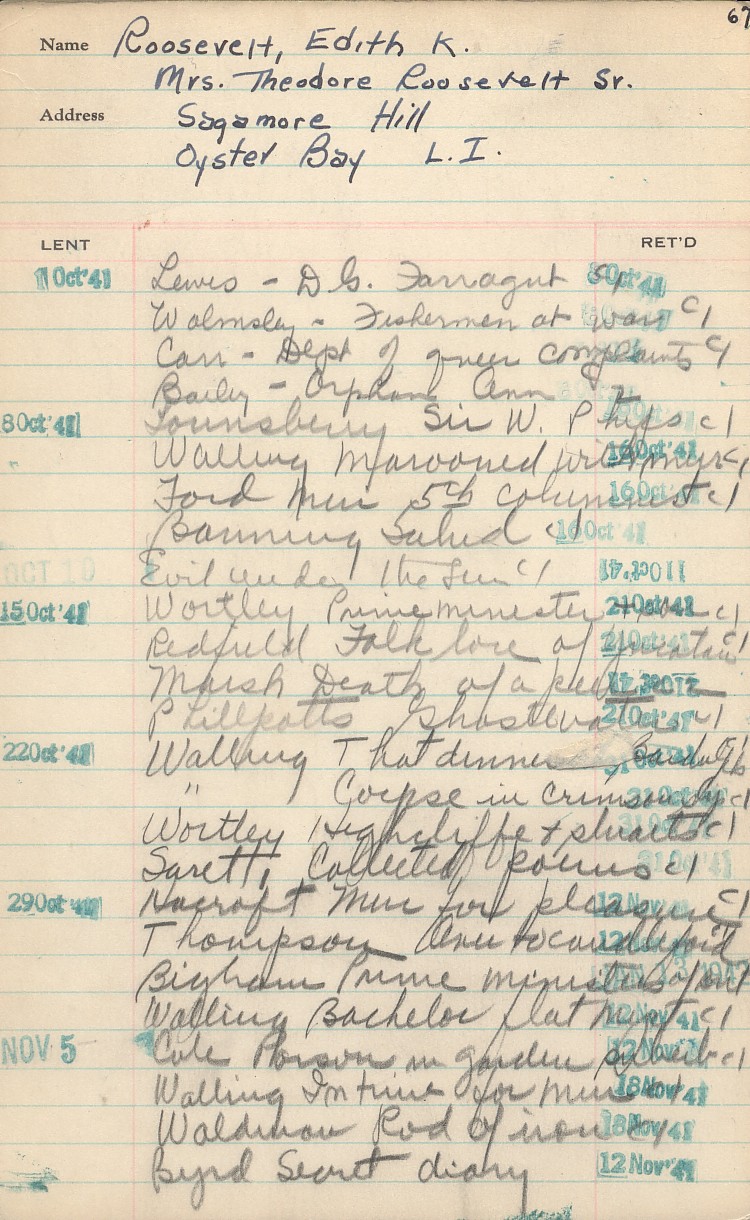 67
Name Roosevelt, Edith K.
Mrs. Theodore Roosevelt Sr.
Address Sagamore Hill
Oyster Bay L. I.
LENT RET'D
1 Oct '41 Lewis - D G. Farragut c1 8 Oct '41
Walmsley - Fishermen at war c1
Carr - Dept of queer complaints c1
Bailey - Orphan Ann
8 Oct '41 Lounsberry Sir W. Phips c1
Walling Marooned with c1 16 Oct '41
Ford Men 5th columnist c1 16 Oct '41
Banning Salud c1 16 Oct '41
OCT 10 Evil under the Sun c1 11 Oct '41
15 Oct '41 Wortley Prime minister c1 21 Oct '41
Redfield Folk lore of c1 21 Oct '41
Marsh Death of a
Phillpotts Ghostwater c1 21 Oct '41
22 Oct '41 Walling That dinner
" Corpse in crimson c1 31 Oct '41
Wortley Highcliffe + c1 31 Oct '41
Sarett, Collected poems c1 31 Oct '41
29 Oct '41 Men for pleasure c1 12 Nov
Thompson 12 Nov
Bigham Prime ministers of JAN 13 1942
Walling Bachelor flat myst c1 12 Nov '41
NOV 5 Cole Poison in garden suburb c1 12 Nov
Walling In time for murder c1 18 Nov '41
Waldman Rod of iron c1 18 Nov '41
Byrd Secret diary 12 Nov '41